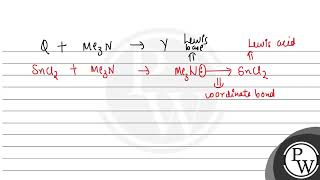 Q + Me3N → Y Lewis base Lewis acid
SnCl2 + Me3N → Me3N: → SnCl2
coordinate bond
PW